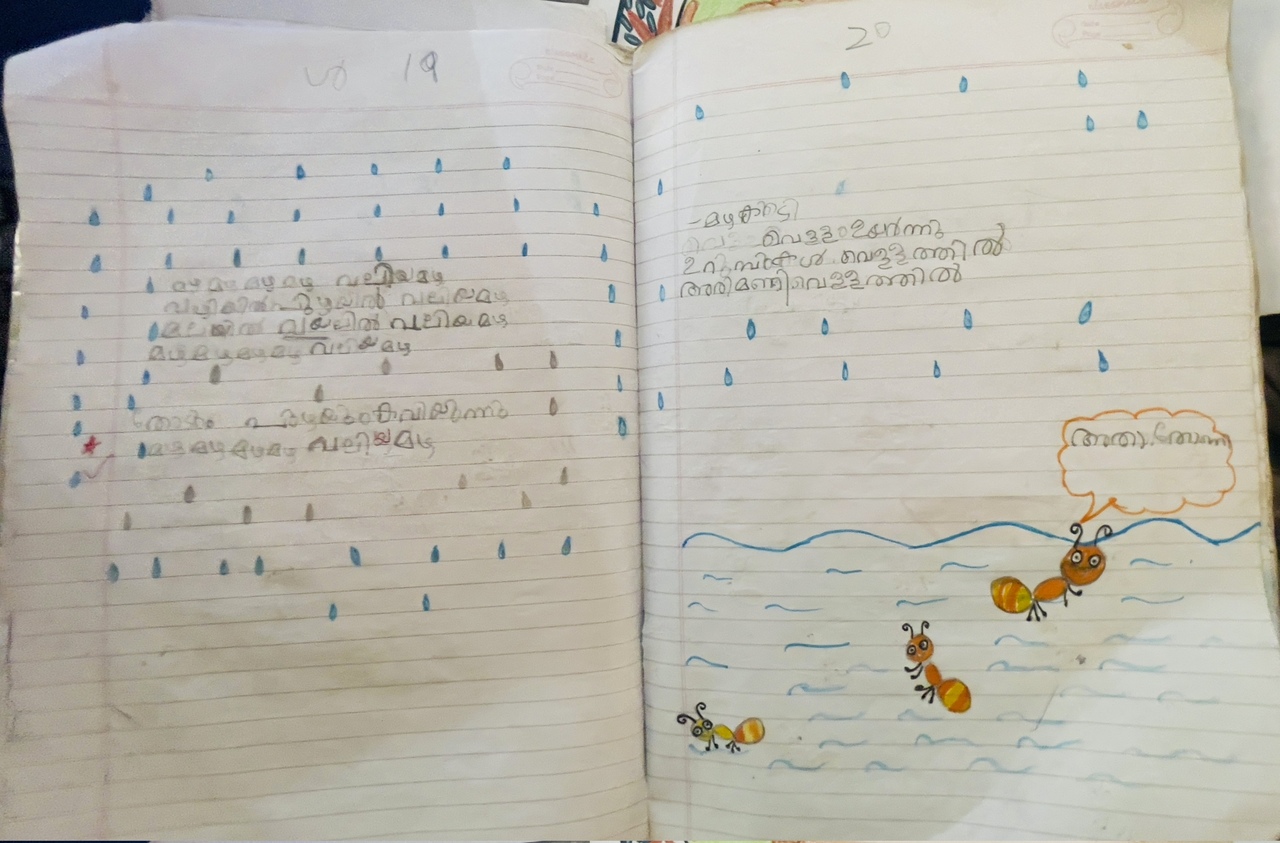 19
മഴ മഴ മഴ മഴ വലിയമഴ
വഴിയിൽ പുഴയിൽ വലിയമഴ
മലയിൽ വയലിൽ വലിയമഴ
മഴ മഴ മഴ മഴ വലിയമഴ
തോടും പുഴയും കവിയുന്നു
മഴ മഴ മഴ മഴ വലിയമഴ
20
മഴകൂടി
വെള്ളം ഉയർന്നു
ഉറുമ്പുകൾ വെള്ളത്തിൽ
അരിമണി വെള്ളത്തിൽ
അതാ. തോണി